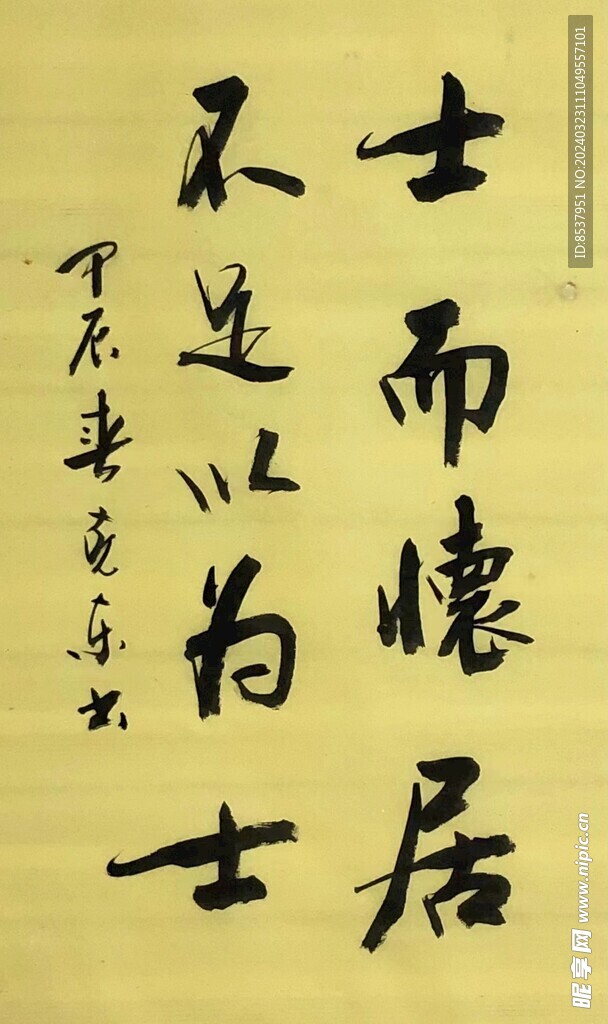 士而懷居
不足以为士
甲辰春克东书
ID:8537951 NO:20240323111049557101
昵享网 www.nipic.cn